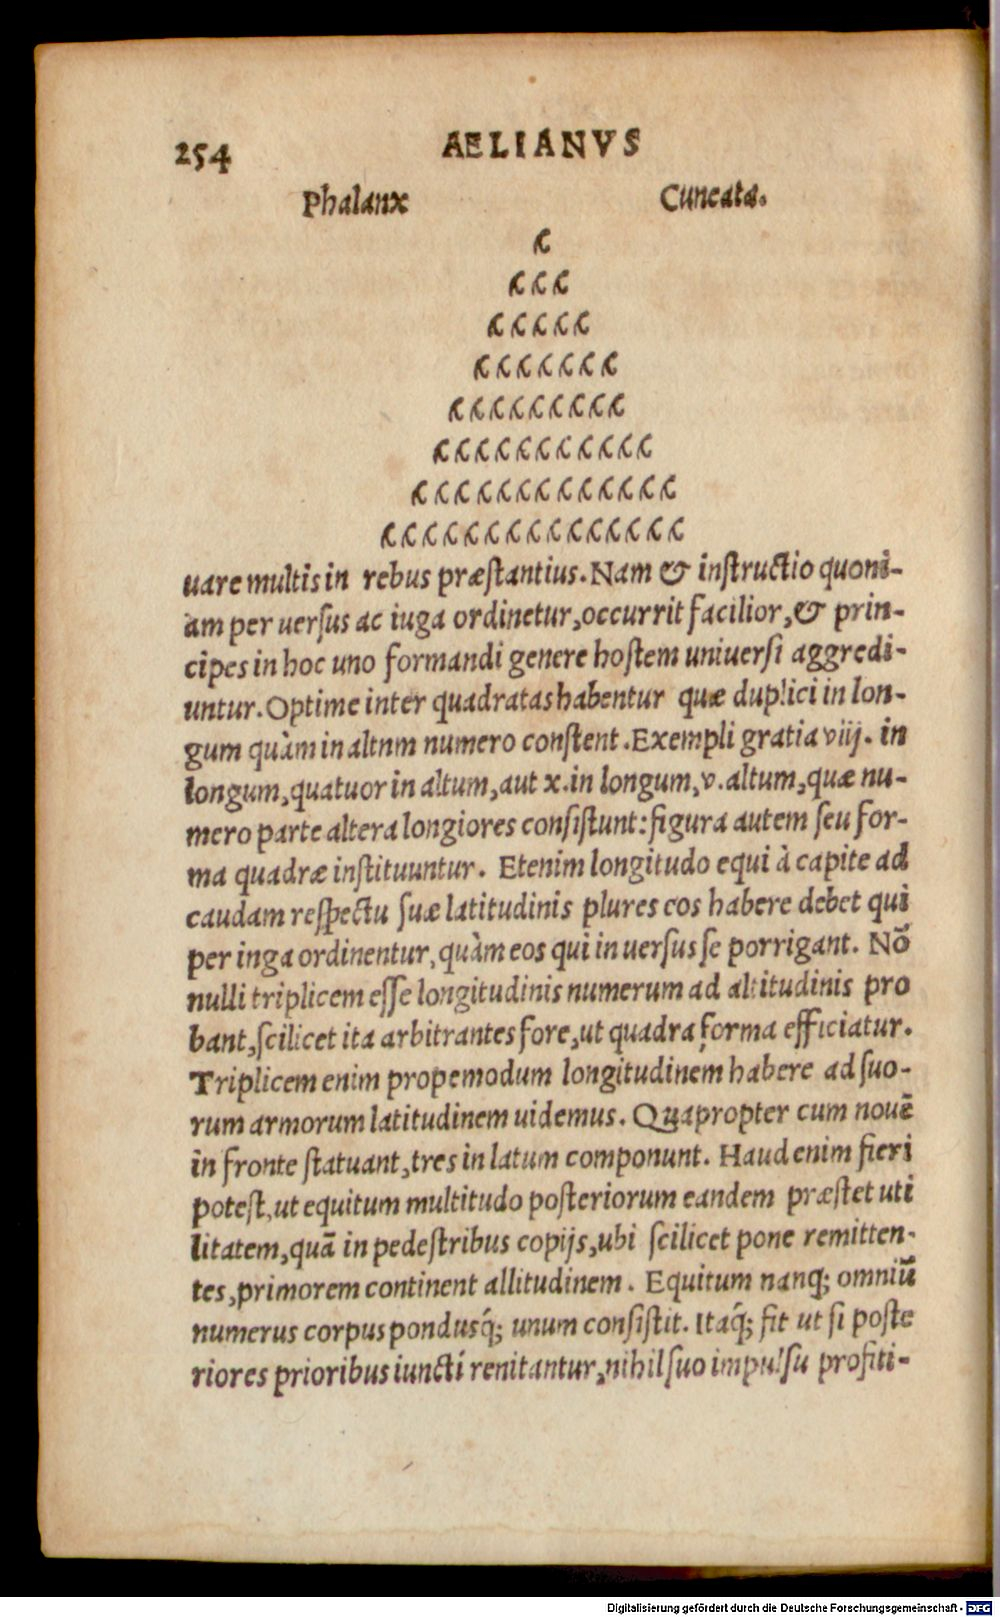 254 AELIANVS
Phalanx Cuneata.
uare multis in rebus præſtantius. Nam & inſtructio quoni-
am per uerſus ac iuga ordinetur, occurrit facilior, & prin-
cipes in hoc uno formandi genere hoſtem uniuerſi aggredi-
untur. Optime inter quadratas habentur quæ duplici in lon-
gum quàm in altnm numero conſtent. Exempli gratia viij. in
longum, quatuor in altum, aut x. in longum, v. altum, quæ nu-
mero parte altera longiores conſiſtunt: figura autem ſeu for-
ma quadræ inſtituuntur. Etenim longitudo equi à capite ad
caudam reſpectu ſuæ latitudinis plures eos habere debet qui
per inga ordinentur, quàm eos qui in uerſus ſe porrigant. Nõ
nulli triplicem eſſe longitudinis numerum ad altitudinis pro
bant, ſcilicet ita arbitrantes fore, ut quadra forma efficiatur.
Triplicem enim propemodum longitudinem habere ad ſuo-
rum armorum latitudinem uidemus. Quapropter cum nouẽ
in fronte ſtatuant, tres in latum componunt. Haud enim fieri
poteſt, ut equitum multitudo poſteriorum eandem præſtet uti
litatem, quã in pedeſtribus copijs, ubi ſcilicet pone remitten-
tes, primorem continent allitudinem. Equitum nanq; omniũ
numerus corpus pondusq́; unum conſiſtit. Itaq́; fit ut ſi poſte
riores prioribus iuncti renitantur, nihil ſuo impulſu profiti-
Digitalisierung gefördert durch die Deutsche Forschungsgemeinschaft - DFG